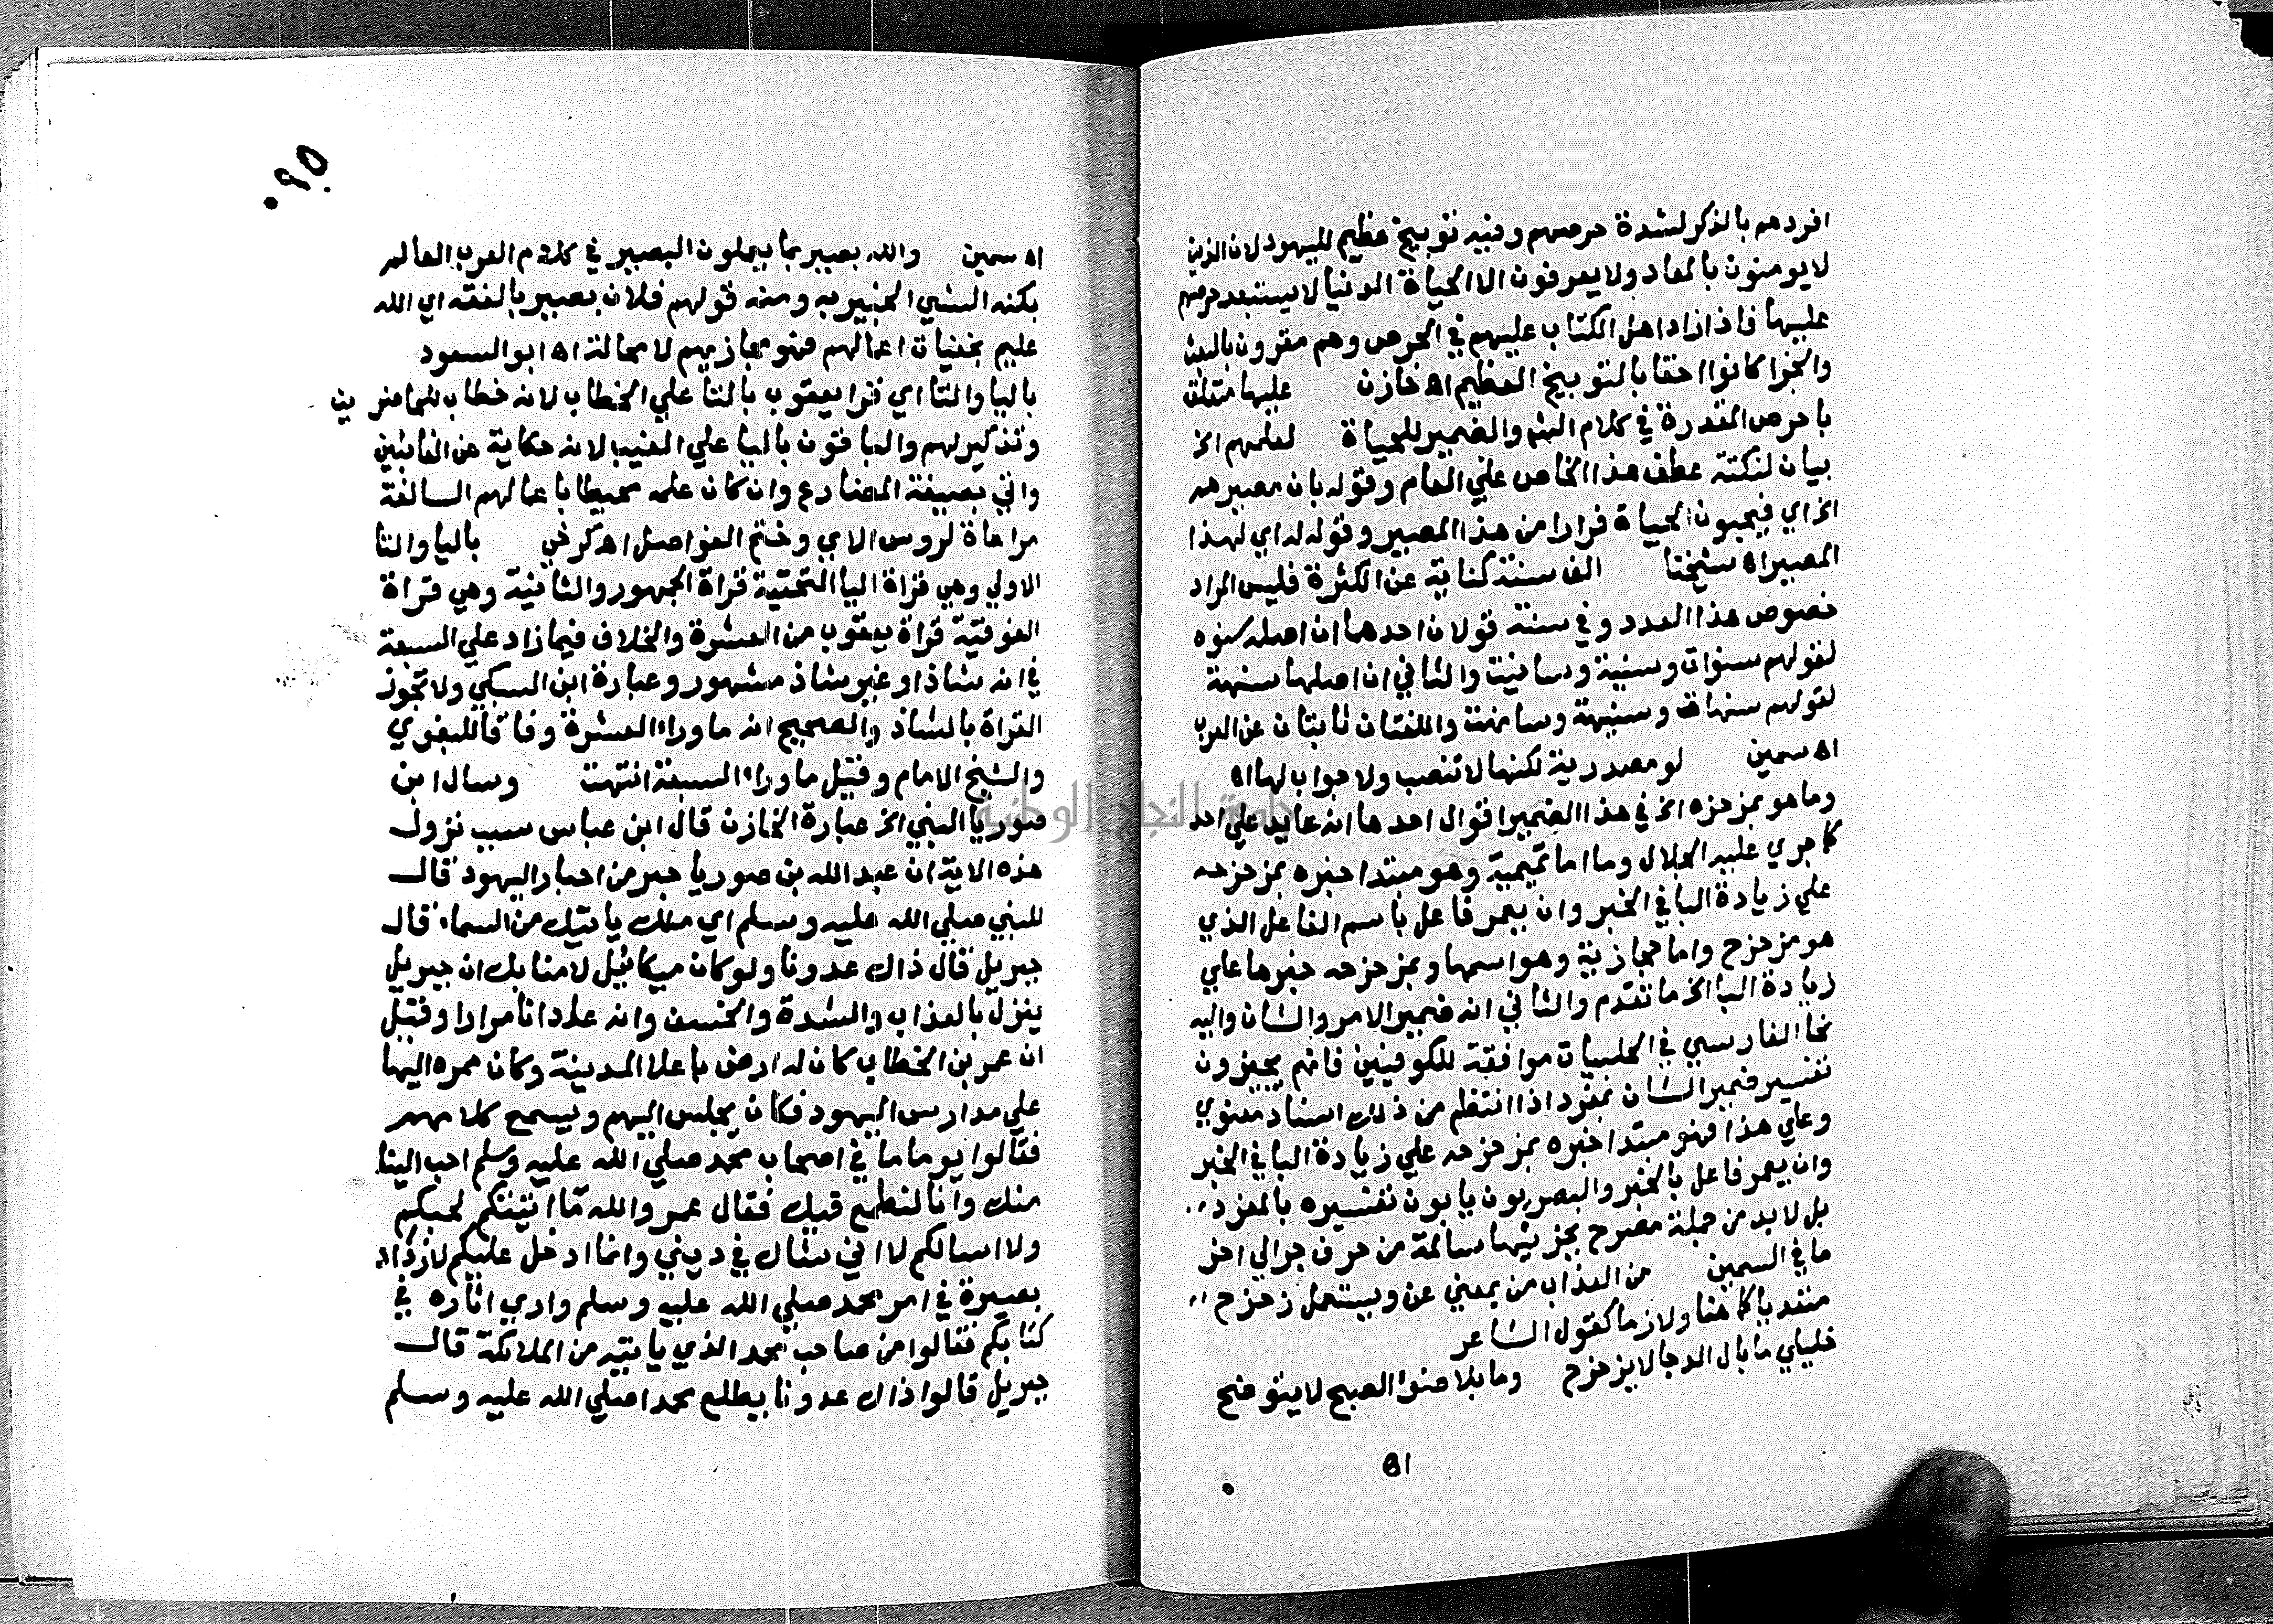 افردهم بالذكر لشدة حرصهم وفيه توبيخ عظيم لليهود لان الذين
لا يومنون بالمعاد ولا يعرفون الا الحياة الدنيا لا يستبعد حرصهم
عليها فاذا زاد اهل الكتاب عليهم في الحرص وهم مقرون بالبعث
والجزا كانوا احقا بالتوبيخ العظيم اه خازن عليها متعلق
باحرص المقدرة في كلام الشم والضمير للحياة لعلمهم الخ
بيان لنكتة عطف هذا الخاص علي العام وقوله بان مصيرهم
الخ اي فيحبون الحياة فرارا من هذا المصير وقوله له اي لهذا
المصير اه شيخنا الف سنة كناية عن الكثرة فليس المراد
خصوص هذا العدد وفي سنة قولان احدهما ان اصله سنوه
لقولهم سنوات وسنية وسانيت والثاني ان اصلها سنهة
لقولهم سنهات وسنيهة وسانهت واللغتان ثابتان عن العرب
اه سمين لو مصدرية لكنها لا تنصب ولا جواب لها اه
وما هو بمزحزه الخ في هذا الضمير اقوال احدها انه عايد علي احد
كما جري عليه الجلال وما اما تميمية وهو مبتدا خبره بمزحزحه
علي زيادة البا في الخبر وان يعمر فاعل باسم الفاعل الذي
هو مزحزح واما حجازية وهو اسمها وبمزحزحه خبرها علي
زيادة البا الخ ما تقدم والثاني انه ضمير الامر والشان واليه
نحا الفارسي في الحلبيات موافقة للكوفيين فانهم يجيزون
تفسير ضمير الشان بمفرد اذا انتظم من ذلك اسناد معنوي
وعلي هذا فهو مبتدا خبره بمزحزحه علي زيادة البا في الخبر
وان يعمر فاعل بالخبر والبصريون يابون تفسيره بالمفرد
بل لا بد من جملة مصرح بجزئيها سالمة من حرف جر الي اخر
ما في السمين من العذاب من بمعني عن ويستعمل زحزح
متعديا كما هنا ولازما كقول الشاعر
خليلي ما بال الدجا لا يزحزح وما بلا ضوا الصبح لا يتوضح
81
٠٩٥
اه سمين والله بصير بما يعملون البصير في كلام العرب العالم
بكنه الشي الخبير به ومنه قولهم فلان بصير بالفقه اي الله
عليم بخفيات اعمالهم فهو مجازيهم لا محالة اه ابو السعود
باليا والتا اي قرا يعقوب بالتا علي الخطاب لانه خطاب للحاضرين
وتذكير لهم والباقون باليا علي الغيب لانه حكاية عن الغائبين
واتي بصيغة المضارع وان كان علمه محيطا باعمالهم السالفة
مراعاة لروس الاي وختم الفواصل اه كرخي باليا والتا
الاولي وهي قراة اليا التحتية قراة الجمهور والثانية وهي قراة
الفوقية قراة يعقوب من العشرة والخلاف فيما زاد علي السبعة
في انه شاذ او غير شاذ مشهور وعبارة ابن السبكي ولا تجوز
القراة بالشاذ والصحيح انه ما وراء العشرة وفاقا للبغوي
والشيخ الامام وقيل ما وراء السبعة انتهت وسال ابن
صوريا النبي الخ عبارة الخازن قال ابن عباس سبب نزول
هذه الاية ان عبد الله بن صوريا حبر من احبار اليهود قال
للنبي صلي الله عليه وسلم اي ملك ياتيك من السماء قال
جبريل قال ذاك عدونا ولو كان ميكائيل لامنا بك ان جبريل
ينزل بالعذاب والشدة والخسف وانه عادانا مرارا وقيل
ان عمر بن الخطاب كان له ارض باعلا المدينة وكان ممره اليها
علي مدارس اليهود فكان يجلس اليهم ويسمع كلامهم
فقالوا يوما ما في اصحاب محمد صلي الله عليه وسلم احب الينا
منك وانا لنطمع فيك فقال عمر والله ما اتيتكم لحبكم
ولا اسالكم لا اني شاك في ديني وانما ادخل عليكم لازداد
بصيرة في امر محمد صلي الله عليه وسلم واري اثاره في
كتابكم فقالوا من صاحب محمد الذي ياتيه من الملائكة قال
جبريل قالوا ذاك عدونا يطلع محمدا صلي الله عليه وسلم
جامعة النجاح الوطنية